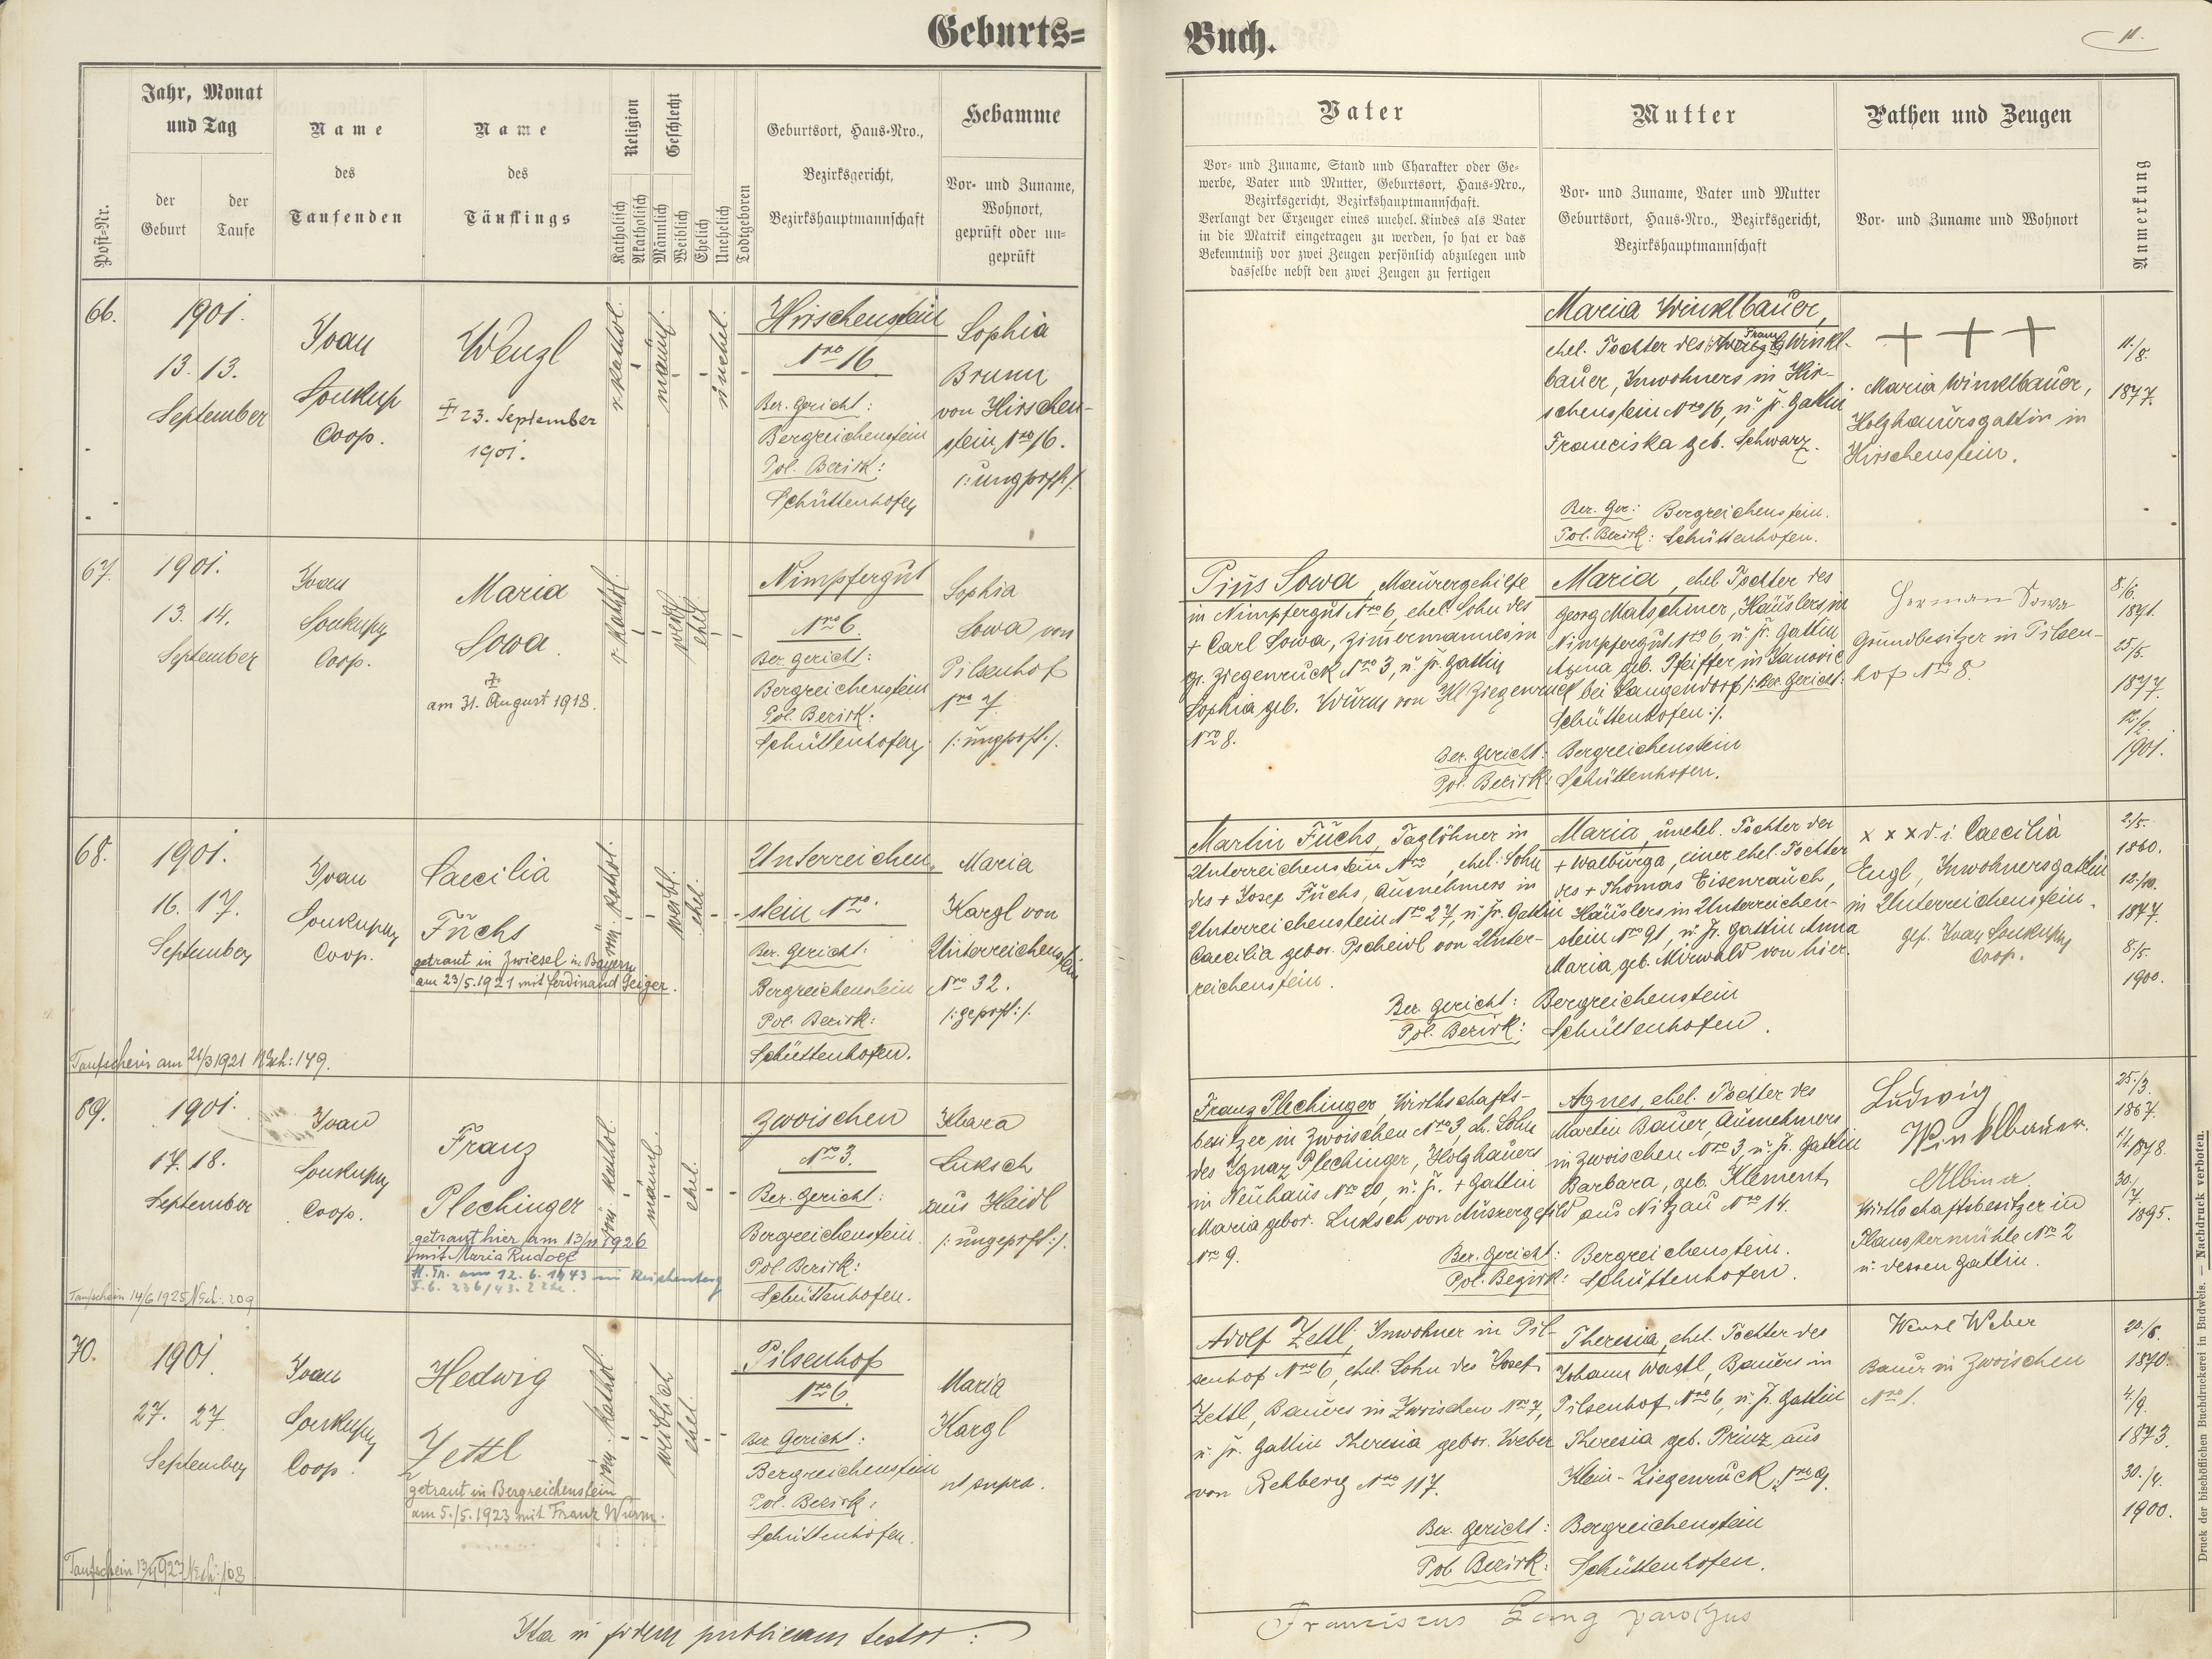 Geburts=
Buch.
11.
Post=Nr.
Jahr, Monat
und Tag
der
Geburt
der
Taufe
Name
des
Taufenden
Name
des
Täuflings
Religion
Katholisch
Akatholisch
Geschlecht
Männlich
Weiblich
Ehelich
Unehelich
Todtgeboren
Geburtsort, Haus=Nro.,
Bezirksgericht,
Bezirkshauptmannschaft
Hebamme
Vor= und Zuname,
Wohnort,
geprüft oder un=
geprüft
Vater
Vor= und Zuname, Stand und Charakter oder Ge=
werbe, Vater und Mutter, Geburtsort, Haus=Nro.,
Bezirksgericht, Bezirkshauptmannschaft.
Verlangt der Erzeuger eines unehel. Kindes als Vater
in die Matrik eingetragen zu werden, so hat er das
Bekenntniß vor zwei Zeugen persönlich abzulegen und
dasselbe nebst den zwei Zeugen zu fertigen
Mutter
Vor= und Zuname, Vater und Mutter
Geburtsort, Haus=Nro., Bezirksgericht,
Bezirkshauptmannschaft
Pathen und Zeugen
Vor= und Zuname und Wohnort
Anmerkung
66.
1901.
13. 13.
September
Joan
Soukup
Coop.
Wenzl
‡ 23. September
1901.
r. kathol.
männl.
unehel.
Hirschenstein
Nro 16
Bez. Gericht:
Bergreichenstein
Pol. Bezirk:
Schüttenhofen
Sophia
Brunn
von Hirschen-
stein Nro 16.
/: ungprft /.
Maria Winklbauer,
ehel. Tochter des Franz Winkl-
bauer, Inwohners in Hir-
schenstein Nro 16, u. fr. Gattin
Franciska geb. Schwarz.
Bez. Ger: Bergreichenstein.
Pol. Bezirk: Schüttenhofen.
+ + +
Maria Winklbauer,
Holzhauersgattin in
Hirschenstein.
11./8.
1877.
67.
1901.
13. 14.
September
Joan
Soukupy
Coop.
Maria
Sowa.
‡
am 31. August 1918.
r. kathol.
weibl.
ehel.
Nimpfergut
Nro 6.
Bez. Gericht:
Bergreichenstein
Pol. Bezirk:
Schüttenhofen
Sophia
Sowa von
Pilsenhof
Nro 7
/: ungprft :/.
Pius Sowa, Maurergehilfe
in Nimpfergut Nro 6, ehel. Sohn des
+ Carl Sowa, Zimermannes in
gr. Ziegenruck Nro 3, u. fr. Gattin
Sophia geb. Wurm von Kl. Ziegenruck
Nro 8.
Maria, ehel Tochter des
Georg Matschiner, Häuslers in
Nimpfergut Nro 6 u. fr. Gattin
Anna geb. Pfeiffer in Janovic
bei Langendorf /: Bez. Gericht:
Schüttenhofen :/.
Bez. Gericht: Bergreichenstein
Pol. Bezirk: Schüttenhofen.
Herman Sowa
Grundbesitzer in Pilsen-
hof Nro 8.
8./6.
1871.
25/5.
1877.
12./2.
1901.
68.
1901.
16. 17.
September
Joan
Soukupy
Coop.
Caecilia
Fuchs
getraut in Zwiesel in Bayern
am 23/5.1921 mit Ferdinand Geiger.
röm. kathol.
weibl.
ehel.
Unterreichen-
stein Nro
Bez. Gericht:
Bergreichenstein
Pol. Bezirk:
Schüttenhofen.
Maria
Kargl von
Unterreichenstein
Nro 32.
/: geprft :/.
Martin Fuchs, Taglöhner in
Unterreichenstein Nro , ehel. Sohn
des + Josef Fuchs, Ausnehmers in
Unterreichenstein Nro 27, u. fr. Gattin
Caecilia gebor. Pscheidl von Unter-
reichenstein.
Maria, unehel. Tochter der
+ Walburga, einer ehel. Tochter
des + Thomas Eisenrauch,
Häuslers in Unterreichen-
stein Nro 91, u. fr. Gattin Anna
Maria, geb. Mirwald von hier.
Bez. Gericht: Bergreichenstein
Pol. Bezirk: Schüttenhofen.
x x x d. i. Caecilia
Engl, Inwohnersgattin
in Unterreichenstein.
gef. Joan Soukupy
Coop.
2./5.
1860.
12./10.
1877.
8./5.
1900.
Taufschein am 21/3 1921 NEch: 149.
69.
1901.
17. 18.
September
Joan
Soukupy
Coop.
Franz
Plechinger
getraut hier am 13/11 1926
mit Maria Rudolf
K. Tr. am 12. 6. 1943 in Reichenberg
röm kathol.
männl.
ehel.
Zwoischen
Nro 3.
Bez. Gericht:
Bergreichenstein
Pol. Bezirk:
Schüttenhofen.
Klara
Luksch
aus Haidl
/: ungeprft :/.
Franz Plechinger, Wirthschafts-
besitzer in Zwoischen Nro 3, eh. Sohn
des Ignaz Plechinger, Holzhauers
in Neuhaus Nro 20, u. fr. + Gattin
Maria gebor. Luksch von Aussergefild
Nro 9.
Agnes, ehel. Tochter des
Marten Bauer, Ausnehmers
in Zwoischen Nro 3, u. fr. Gattin
Barbara, geb. Klement
aus Nitzau Nro 14.
Bez. Gericht: Bergreichenstein.
Pol. Bezirk: Schüttenhofen.
Ludwig
Winklbauer.
Albina
Wirthschaftsbesitzer in
Nro 2
u. dessen Gattin.
25./3.
1867.
1/1. 1878.
30./7.
1895.
Taufschein 14/6 1925 NEch: 209
70.
1901.
27. 27
September
Joan
Soukupy
Coop.
Hedwig
Zettl
getraut in Bergreichenstein
am 5./5.1923 mit Franz Wurm.
röm. kathol.
weiblich
ehel.
Pilsenhof
Nro 6.
Bez. Gericht:
Bergreichenstein
Pol. Bezirk:
Schüttenhofen.
Maria
Kargl
ut supra.
Adolf Zettl, Inwohner in Pil-
senhof Nro 6, ehel. Sohn des Josef
Zettl, Bauers in Zwoischen Nro 7,
u. fr. Gattin Theresia gebor. Weber
von Rehberg Nro 117.
Theresia, ehel. Tochter des
Johann Wastl, Bauers in
Pilsenhof Nro 6, u. fr. Gattin
Theresia geb. Prinz aus
Klein-Ziegenruck, Nro 9.
Bez. Gericht: Bergreichenstein
Pol. Bezirk: Schüttenhofen.
Wenzl Weber
Bauer in Zwoischen
Nro 1.
20./6.
1870.
4./9.
1873.
30./4.
1900.
Ita in fidem publicam testor:
Franciscus Lang parochus
Druck der bischöflichen Buchdruckerei in Budweis. — Nachdruck verboten.